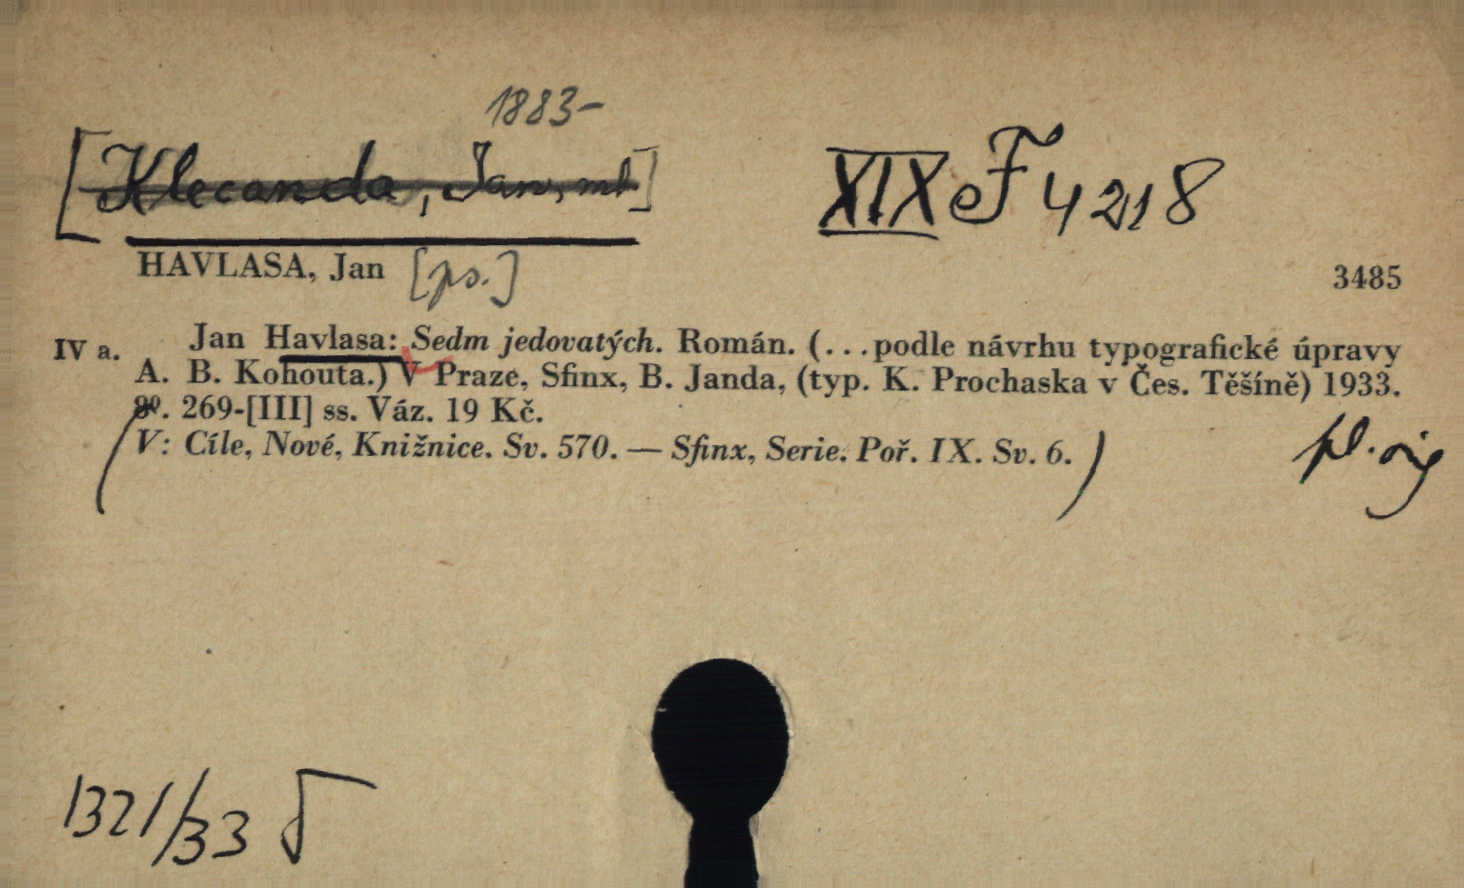 1883-
[Klecanda, Jan, ml.]
XIX F 4218
HAVLASA, Jan [ps.]
3485
IV a. Jan Havlasa: Sedm jedovatých. Román. (...podle návrhu typografické úpravy
A. B. Kohouta.) V Praze, Sfinx, B. Janda, (typ. K. Prochaska v Čes. Těšíně) 1933.
8º. 269-[III] ss. Váz. 19 Kč.
(V: Cíle, Nové, Knižnice. Sv. 570. — Sfinx, Serie. Poř. IX. Sv. 6.)
pl. orig
1321/33